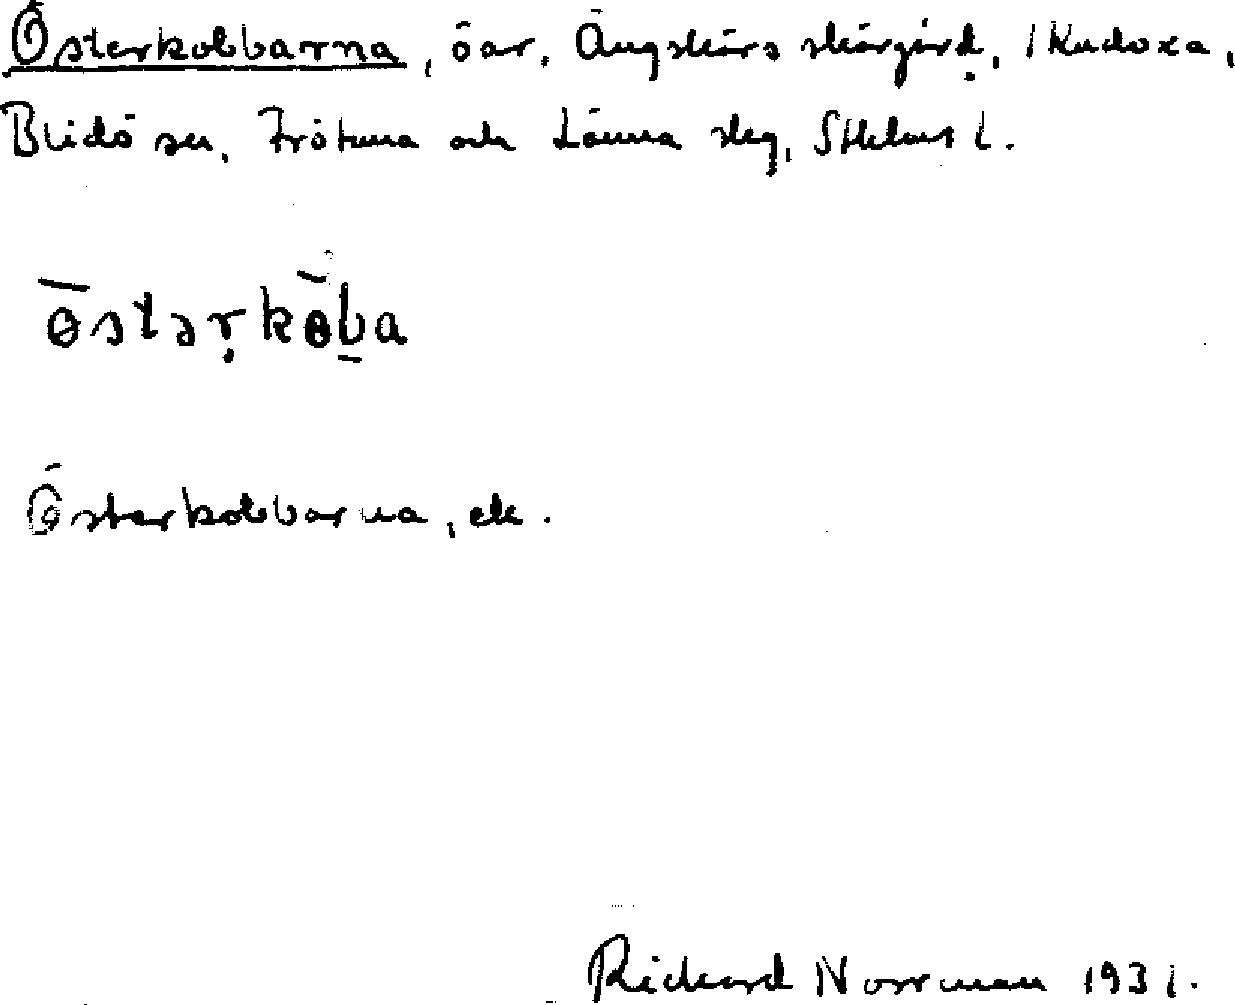 Österkobbarna, öar. Ängskärs skärgård, 1 Kudoxa,
Blidö sn, Frötuna och Länna skg, Sthlms l.
östərkoba
Österkobbarna, ek.
Richard Norrman 1931.